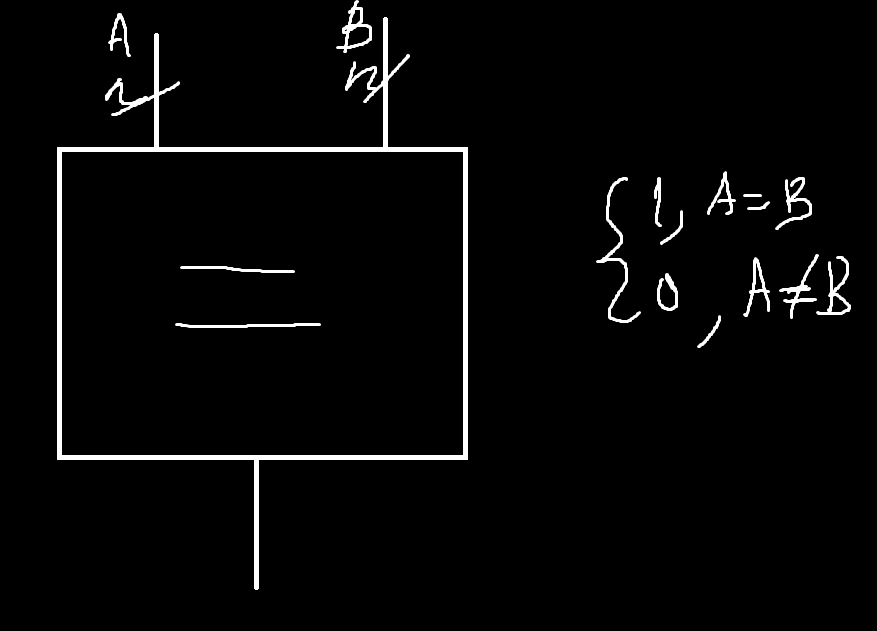 A B
n n
=
{ 1, A=B
0, A≠B